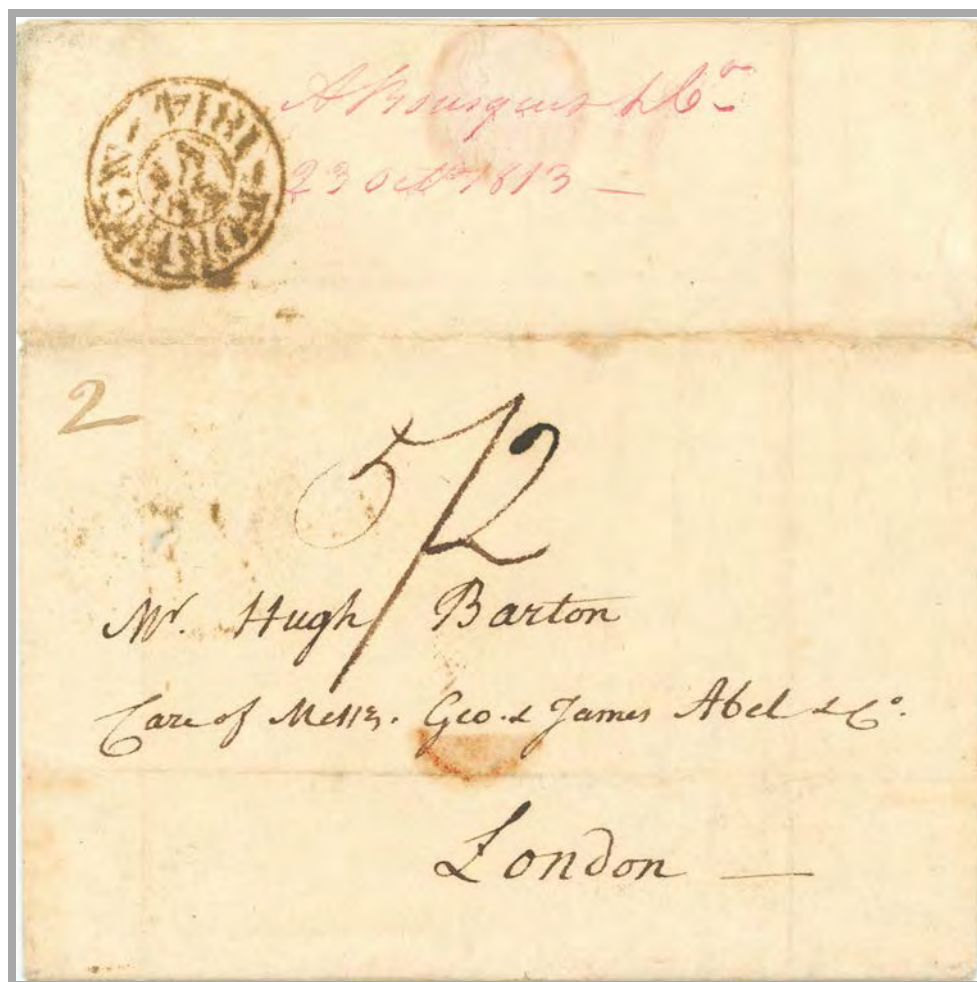 FOREIGN 1814
A Bousquet & Co
23 Octr 1813 —
2
5/2
Mr. Hugh Barton
Care of Messrs. Geo. & James Abel & Co.
London —